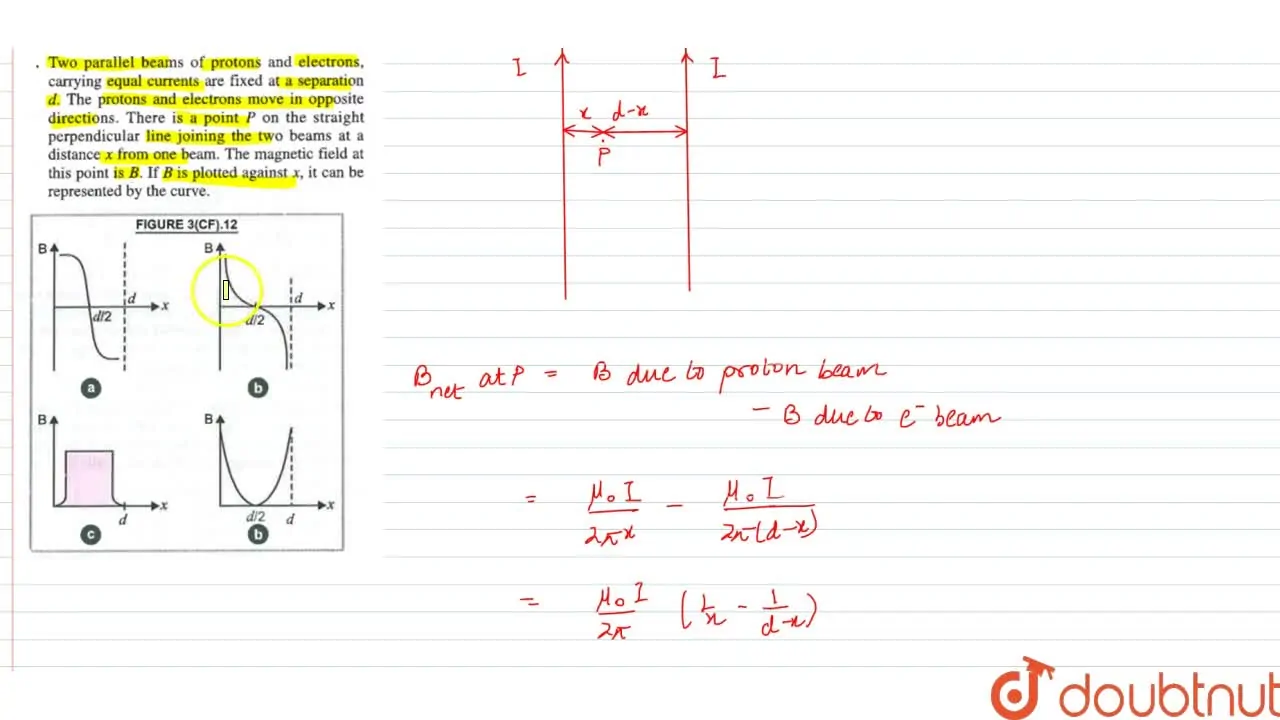 . Two parallel beams of protons and electrons,
carrying equal currents are fixed at a separation
d. The protons and electrons move in opposite
directions. There is a point P on the straight
perpendicular line joining the two beams at a
distance x from one beam. The magnetic field at
this point is B. If B is plotted against x, it can be
represented by the curve.
FIGURE 3(CF).12
B
d
x
d/2
a
B
d
x
d/2
b
B
x
d
c
B
x
d/2 d
b
I
I
x d-x
P
Bnet at P = B due to proton beam
- B due to e- beam
= μ₀I/2πx - μ₀I/2π(d-x)
= μ₀I/2π (1/x - 1/d-x)
doubtnut